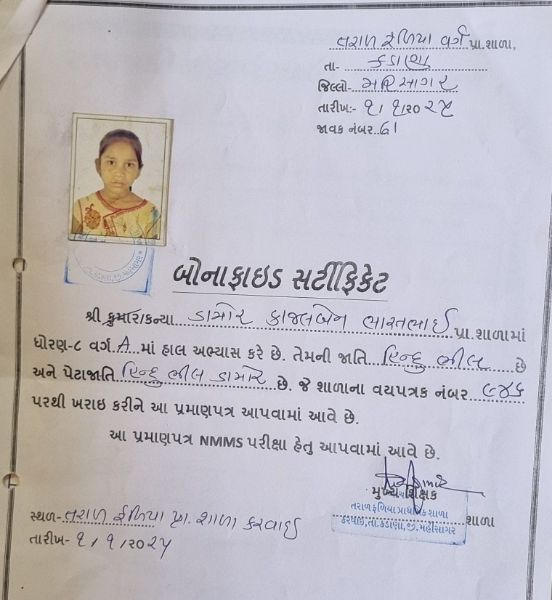 તરાળ ફળિયા વર્ગ પ્રા.શાળા,
તા- કડાણા
જિલ્લો- મહિસાગર
તારીખ- ૧/૧/૨૦૨૫
જાવક નંબર.. 61
બોનાફાઇડ સર્ટીફિકેટ
શ્રી કુમાર/કન્યા ડામોર કાજલબેન ભારતભાઈ પ્રા.શાળામાં
ધોરણ-૮ વર્ગ A માં હાલ અભ્યાસ કરે છે. તેમની જાતિ હિન્દુ ભીલ છે
અને પેટાજાતિ હિન્દુ ભીલ ડામોર છે. જે શાળાના વયપત્રક નંબર
પરથી ખરાઇ કરીને આ પ્રમાણપત્ર આપવામાં આવે છે.
આ પ્રમાણપત્ર NMMS પરીક્ષા હેતુ આપવામાં આવે છે.
મુખ્ય શિક્ષક
તરાળ ફળિયા પ્રાથમિક શાળા
તા.કડાણા,જી.મહીસાગર
શાળા
સ્થળ- તરાળ ફળિયા પ્રા. શાળા કરવાઇ
તારીખ- ૧/૧/૨૦૨૫